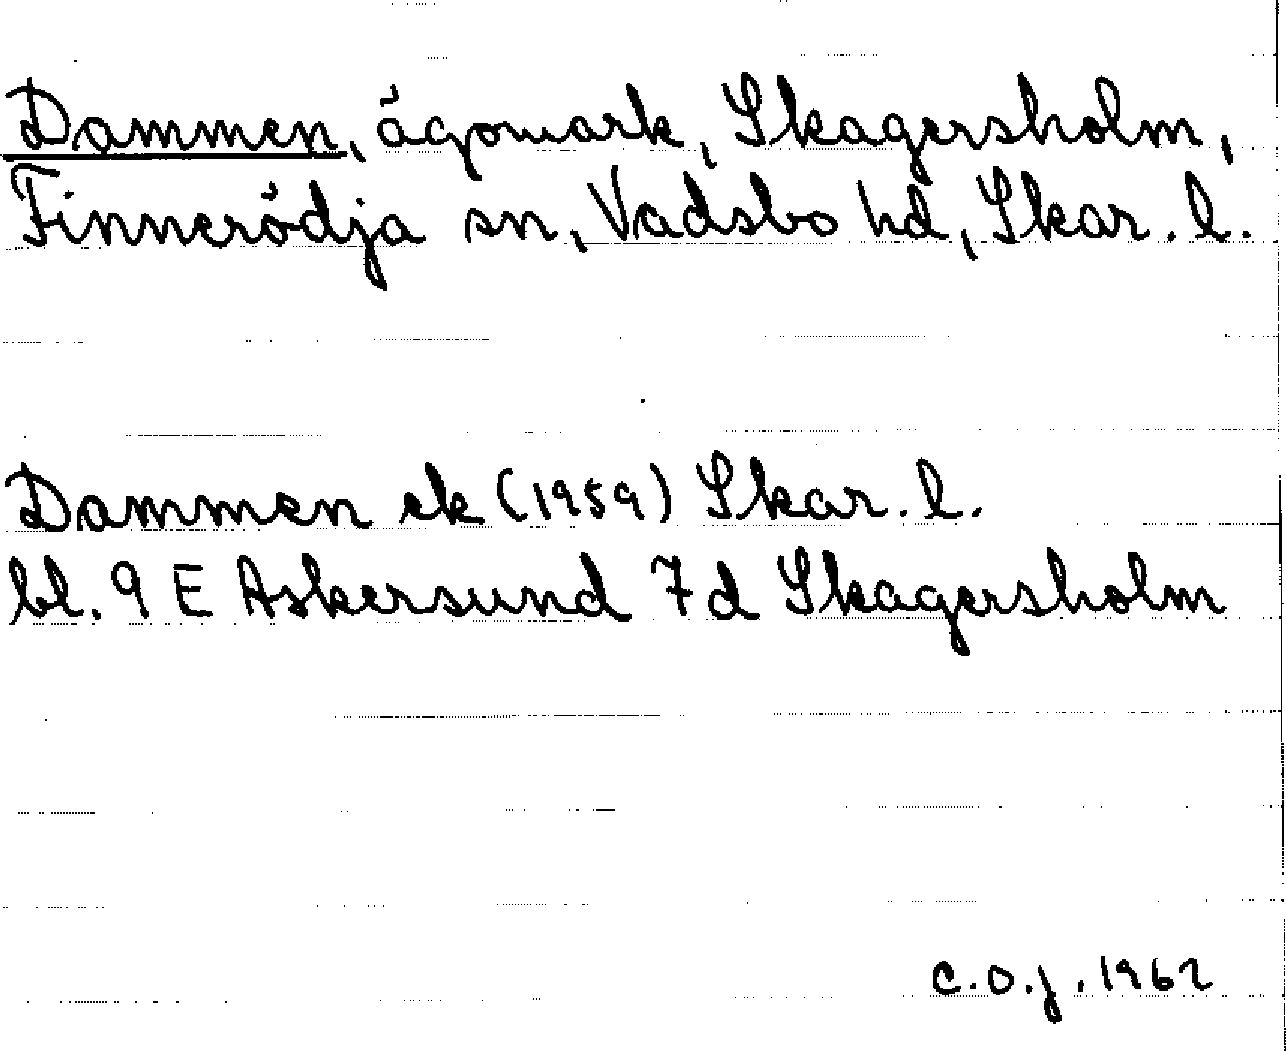 Dammen, ägomark, Skagersholm,
Finnerödja sn, Vadsbo hd, Skar. l.
Dammen ek (1959) Skar. l.
bl. 9 E Askersund 7 d Skagersholm
C.O.J. 1962